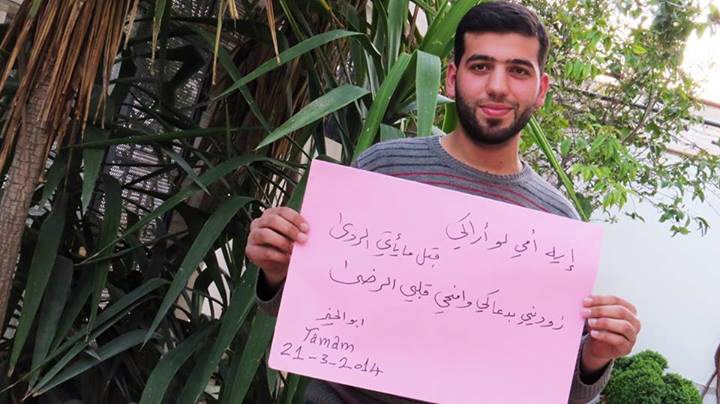 إيه أمي لو أراكي
قبل ما يأتي الردى
زوديني بدعاكي وامنحي قلبي الرضى
ابو الخير
Tamam
21-3-2014